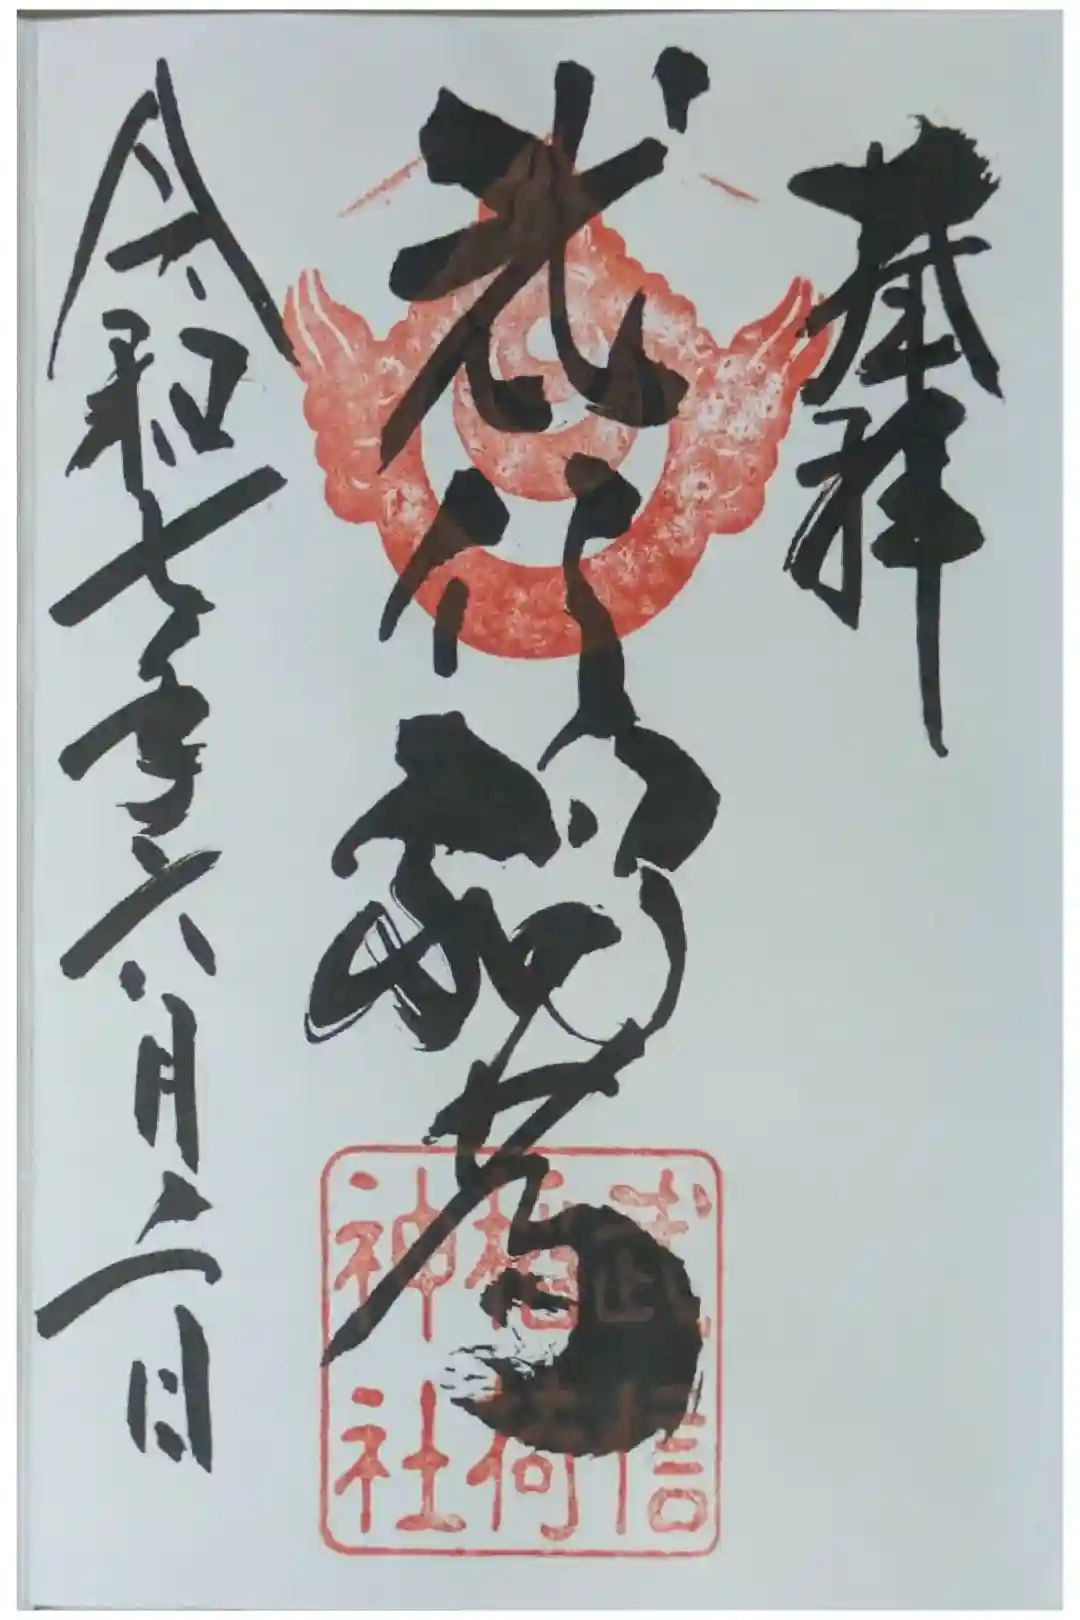 奉拝
武信稲荷
武信
稲荷
神社
令和七年六月二日